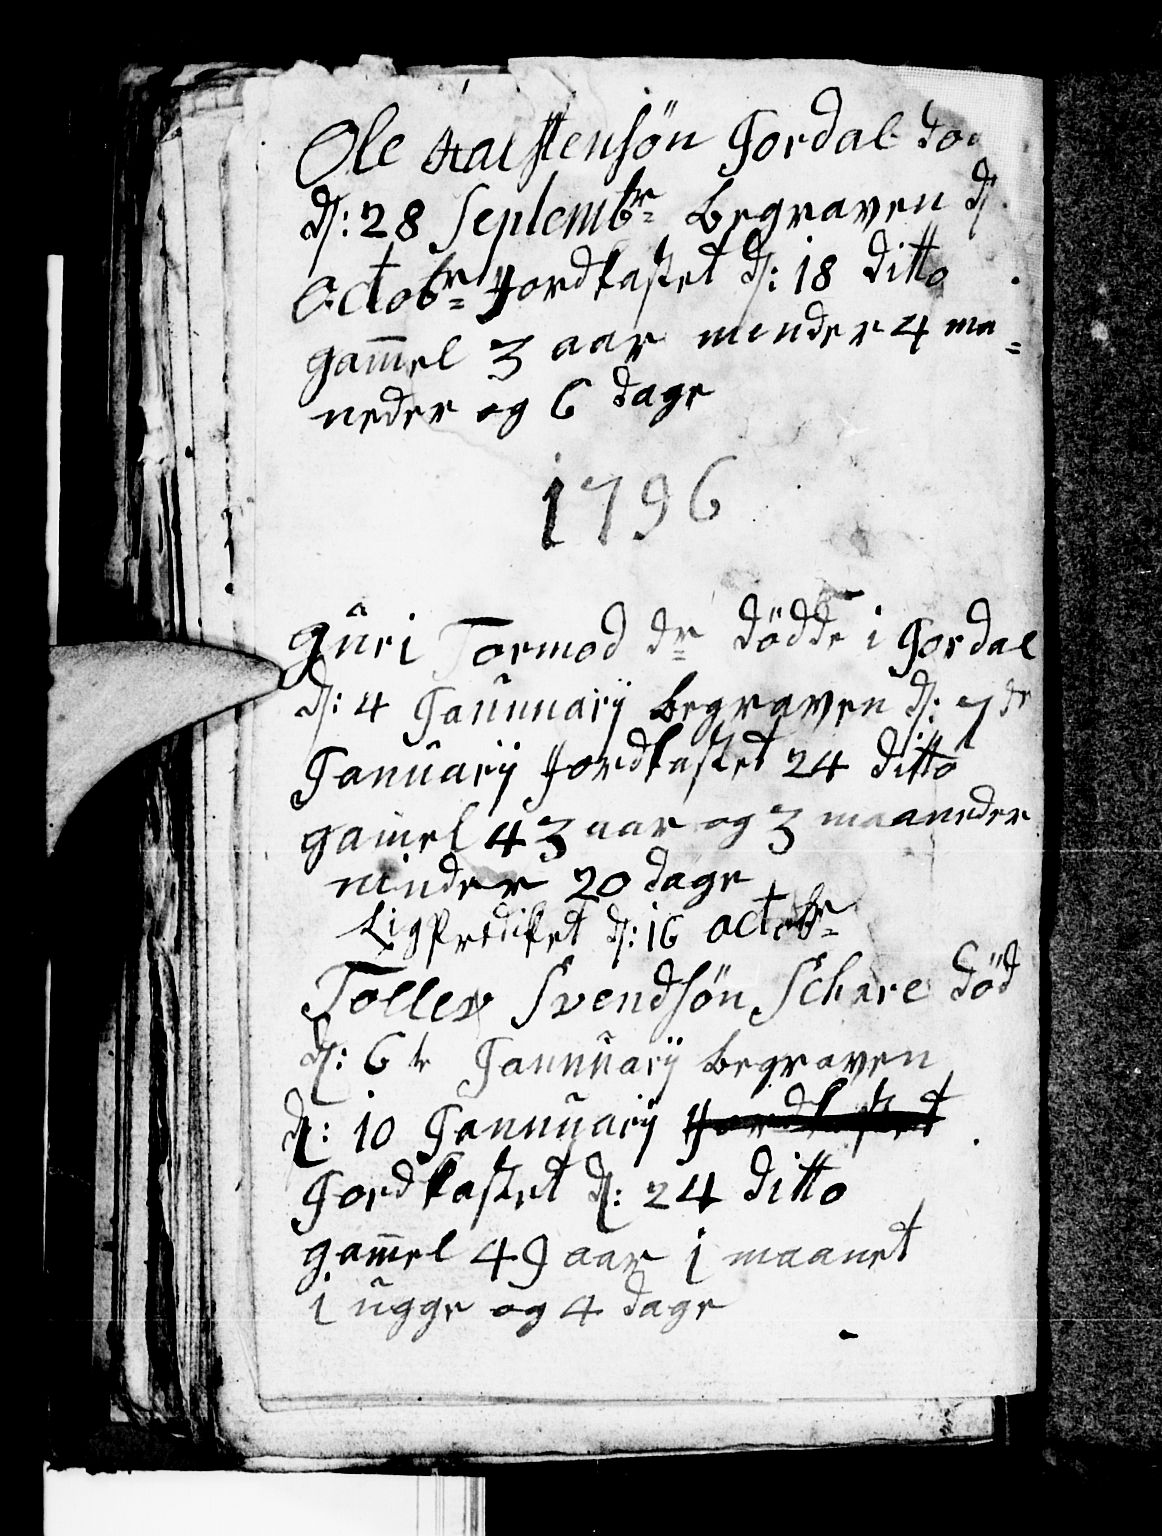 Ole Halstensön Jordal dö
d: 28 Septembr Begraven d
Octobr Jordkastet d: 18 ditto
gam̅el 3 aar minder 4 ma=
neder og 6 dage
1796
Gûri Tormod dr dödde i Jordal
d: 4 Januuarij Begraven d: 7de
Januarij Jordkastet 24 ditto
gamel 43 aar og 3 maaneder
minder 20 dage
Ligprediket d: 16 octobr
Tollev Svendsön Schare död
d: 6te Januuarij Begraven
d: 10 Januuarij Jordkastet
Jordkastet d: 24 ditto
gam̅el 49 aar 1 maanet
1 ugge og 4 dage